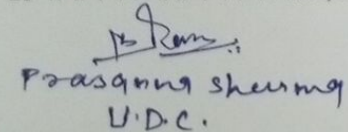 Prasanna Sharma
U.D.C.